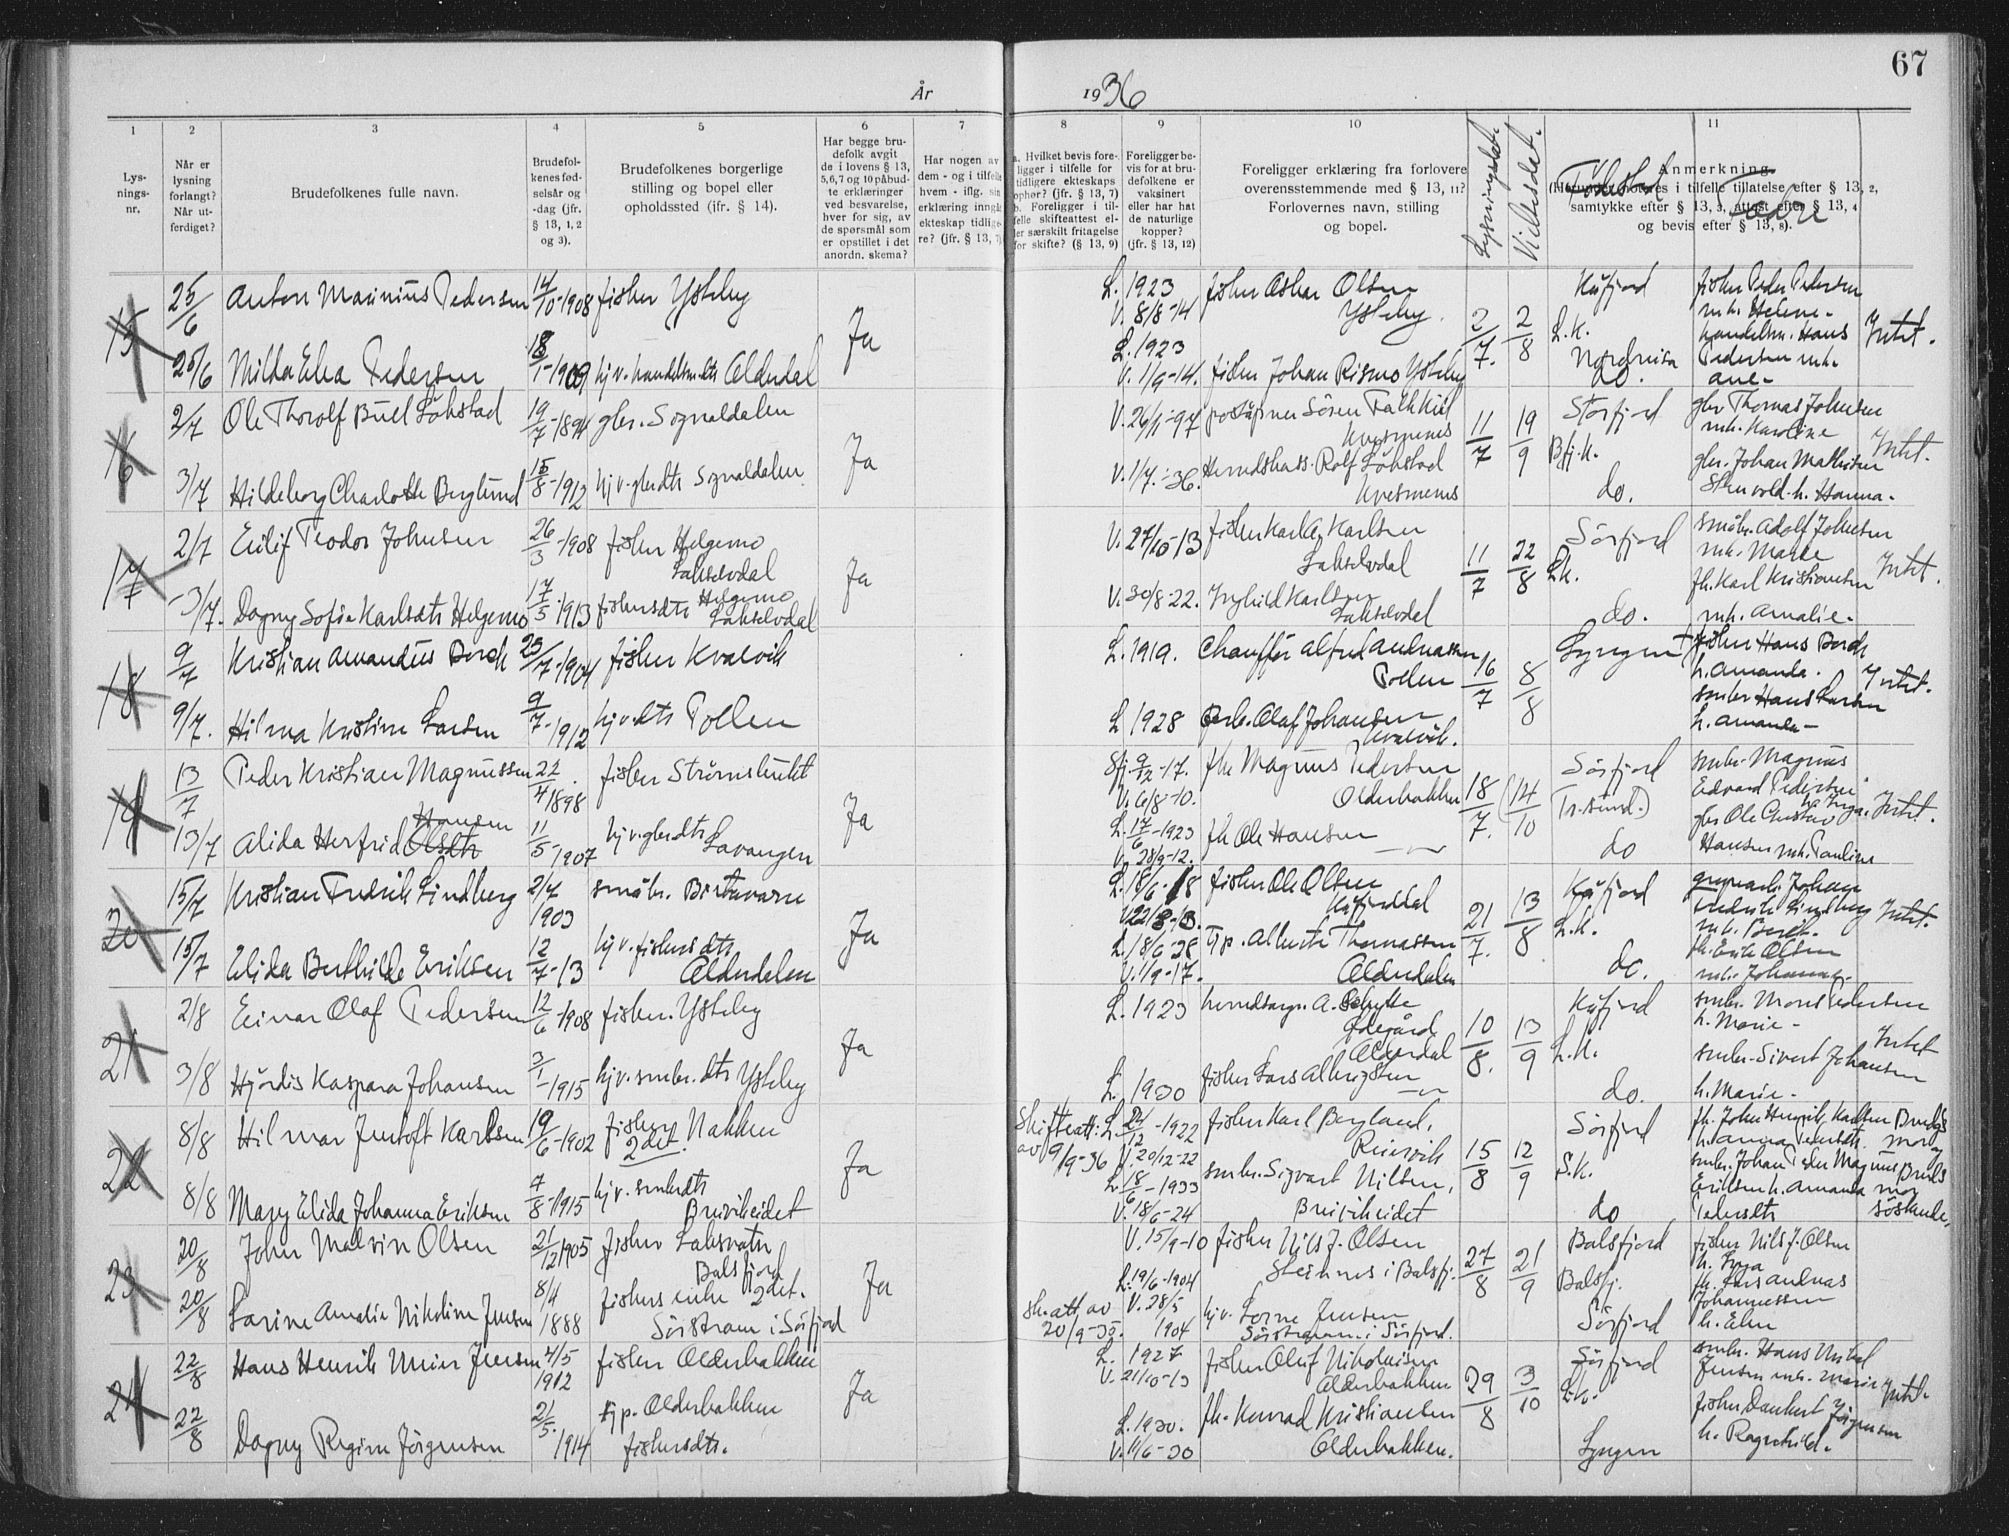 67
År 1936
1
2
3
4
5
6
7
8
9
10
11
Lys-
nings-
nr.
Når er
lysning
forlangt?
Når ut-
ferdiget?
Brudefolkenes fulle navn.
Brudefol-
kenes fød-
selsår og
-dag (jfr.
§ 13, 1, 2
og 3).
Brudefolkenes borgerlige
stilling og bopel eller
opholdssted (jfr. § 14).
Har begge bru-
defolk avgit
de i lovens § 13,
5, 6, 7 og 10 påbud-
te erklæringer
ved besvarelse,
hver for sig, av
de spørsmål som
er opstillet i det
anordn. skema?
Har nogen av
dem - og i tilfelle
hvem - iflg. sin
erklæring inngått
ekteskap tidlige-
re? (jfr. § 13, 7)
a. Hvilket bevis fore-
ligger i tilfelle for
tidligere ekteskaps
ophør? (jfr. § 13, 7)
b. Foreligger i til-
felle skifteattest el-
ler særskilt fritagelse
for skifte? (§ 13, 9)
Foreligger be-
vis for at bru-
defolkene er
vaksinert
eller har hat
de naturlige
kopper?
(jfr. § 13, 12)
Foreligger erklæring fra forlovere
overensstemmende med § 13, 11?
Forlovernes navn, stilling
og bopel.
Lysningsdat.
Vielsesdat.
Anmerkning.
(Herunder noteres i tilfelle tillatelse efter § 13, 2,
samtykke efter § 13, 3, attest efter § 13, 4
og bevis efter § 13, 8).
Fødested
15
25/6 Anton Marinius Pedersen 14/10-1908 fisker Ysteby
Ja
L. 1923 fisker Oskar Olsen
V. 8/8-14 Ysteby.
2/7. 2/8 L.K.
Kåfjord fisker Peder Pedersen
mh. Helene-
25/6 Milda Elea Pedersen 18/1-1909 hjv. handelsm.dtr Olderdal
L. 1923
V. 1/9-14. fisker Johan Rismo Ysteby
Nordreisa
do.
handelsm. Hans
Pedersen mh.
Ane-
Intet.
16
2/7 Ole Thorolf Buel Løkstad 19/7-1894 gbr. Signaldalen
Ja
V. 26/1-97 poståpner Søren Falk
Kvesmenes
11/7 19/9 Bfj.K.
Storfjord gbr Thomas Johnsen
mh. Karoline
3/7 Hildeborg Charlotte Berglund 15/8-1912 hjv. gbrdtr Signaldalen
V. 1/7.-36. Herredskass. Rolf Løkstad
Kvesmenes
do.
gbr. Johan Mathisen
h. Hanna.
Intet.
17
2/7 Eilif Teodor Johnsen 26/3-1908 fisker Helgemo
Lakselvdal
Ja
V. 27/10-13 fisker Karl A. Karlsen
Lakselvdal
11/7 22/8 L.K.
Sørfjord småbr. Adolf Johnsen
mh. Marie
3/7. Dagny Sofie Karlsdtr Helgemo 17/5-1913 fiskersdtr Helgemo
Lakselvdal
V. 30/8-22. Inghild Karlsen
Lakselvdal
do.
fh. Karl Kristiansen
mh. Amalie.
Intet.
18
9/7 Kristian Amandus Borch 25/7-1904 fisker Kvalvik
L. 1919. Chauffør Alfred Andreassen
Pollen
16/7 8/8
Lyngen fisker Hans Borch
h. Amanda.
9/7. Hilma Kristine Larsen 9/7-1912 hjv. dtr Pollen
L. 1928 Olaf Johansen
Kvalvik.
småbr Hans Larsen
h. Amanda-
Intet.
19
13/7 Peder Kristian Magnussen 22/4 1898 fisker Strømsbukt
Ja
9/12-17. fhv Magnus Pedersen
V. 6/8-10. Olderbakken
18/7. (14/10 Tr.sund.)
Sørfjord småbr. Magnus
Edvard Pedersen
h. Inga.
13/7 Alida Herfrid Olsdtr Hansen 11/5-1907 hjv. gbrdtr
Lavangen
L. 17/6-1923 fh Ole Hansen
V. 28/9-12.
do
gbr Ole Gustav
Hansen mh. Pauline
Intet.
20
15/7 Kristian Fredrik Lindberg 2/7 1903 småbr. Birtavarre
Ja
L. 18/6-18 fisker Ole Olsen
Kåfjorddal
21/7. 13/8 L.K.
Kåfjord Johan
Fredrik Lindberg
mh. Berit.
15/7 Elida Berthilde Eriksen 12/7-13 hjv. fiskersdtr
Olderdalen
L. 18/6-28 Tjp. Alberte Thomassen
V. 1/9-17. Olderdalen
do.
fh. Erik Olsen
mh. Johanna.
Intet.
21
2/8 Einar Olaf Pedersen 12/6-1908 fisker. Ysteby
Ja
L. 1923 herredsagr. A. Schytte
Ødegård
Olderdal
10/8. 13/9 L.K.
Kåfjord småbr. Mons Pedersen
h. Marie-
3/8 Hjørdis Kaspara Johansen 3/1-1915 hjv. småbr.dtr Ysteby
L. 1930 fisker Lars Albrigtsen
do.
småbr. Sivert Johansen
h. Marie-
Intet
22
8/8 Hilmar Jentoft Karlsen 19/6-1902 fisker Nakken
2det.
Ja
Skifteatt. L. 21/12-1922 fisker Karl Bergland,
av 9/9-36 V. 20/12-22 Reinvik
15/8 12/9 S.K.
Sørfjord fh. John Henrik Karlsen Bruds
h. Anna Pedersdtr. mor og
8/8 Mary Elida Johanna Eriksen 7/8-1915 hjv. småbrdtr
Breivikeidet
L. 18/6-1933 småbr. Sigvart Nilsen,
V. 18/6-24 Breivikeidet
do
småbr. Johan Peder Magnus Bruds
Eriksen h. Amanda mor
Pedersdtr søskende.
23
20/8 John Malvin Olsen 21/12 1905 fisker Laksvatn
Balsfjord
Ja
V. 15/9-10 fisker Nils J. Olsen
Steinnes i Balsfj.
27/8 21/9 Balsfj.
Balsfjord fisker Nils J. Olsen
20/8 Larine Amalie Nikoline Jensen 8/4 1888 fiskers enke 2det.
Sørstraum i Sørfjord
L. 19/6-1904
sk.att. av V. 28/5
20/9-35. 1904 hjv. Lorne Jensen
Sørstraumen i Sørfjord.
Sørfjord
fh. Lars Andreas
Johannessen
h. Elen
24
22/8 Hans Henrik Meier Jensen 4/5 1912 fisker Olderbakken
Ja
L. 1927 fisker Oluf Nikolaisen
V. 21/10-13 Olderbakken
29/8 3/10 L.K.
Sørfjord småbr. Hans Mikal
Jensen mh. Marie
22/8 Dagny Regine Jørgensen 21/5. 1914 tjp. Olderbakken
fiskersdtr.
L. 1930. fh. Konrad Kristiansen
V. 11/6-30 Olderbakken.
Lyngen
fisker Dankert Jørgensen
h. Ragnhild.
Intet.